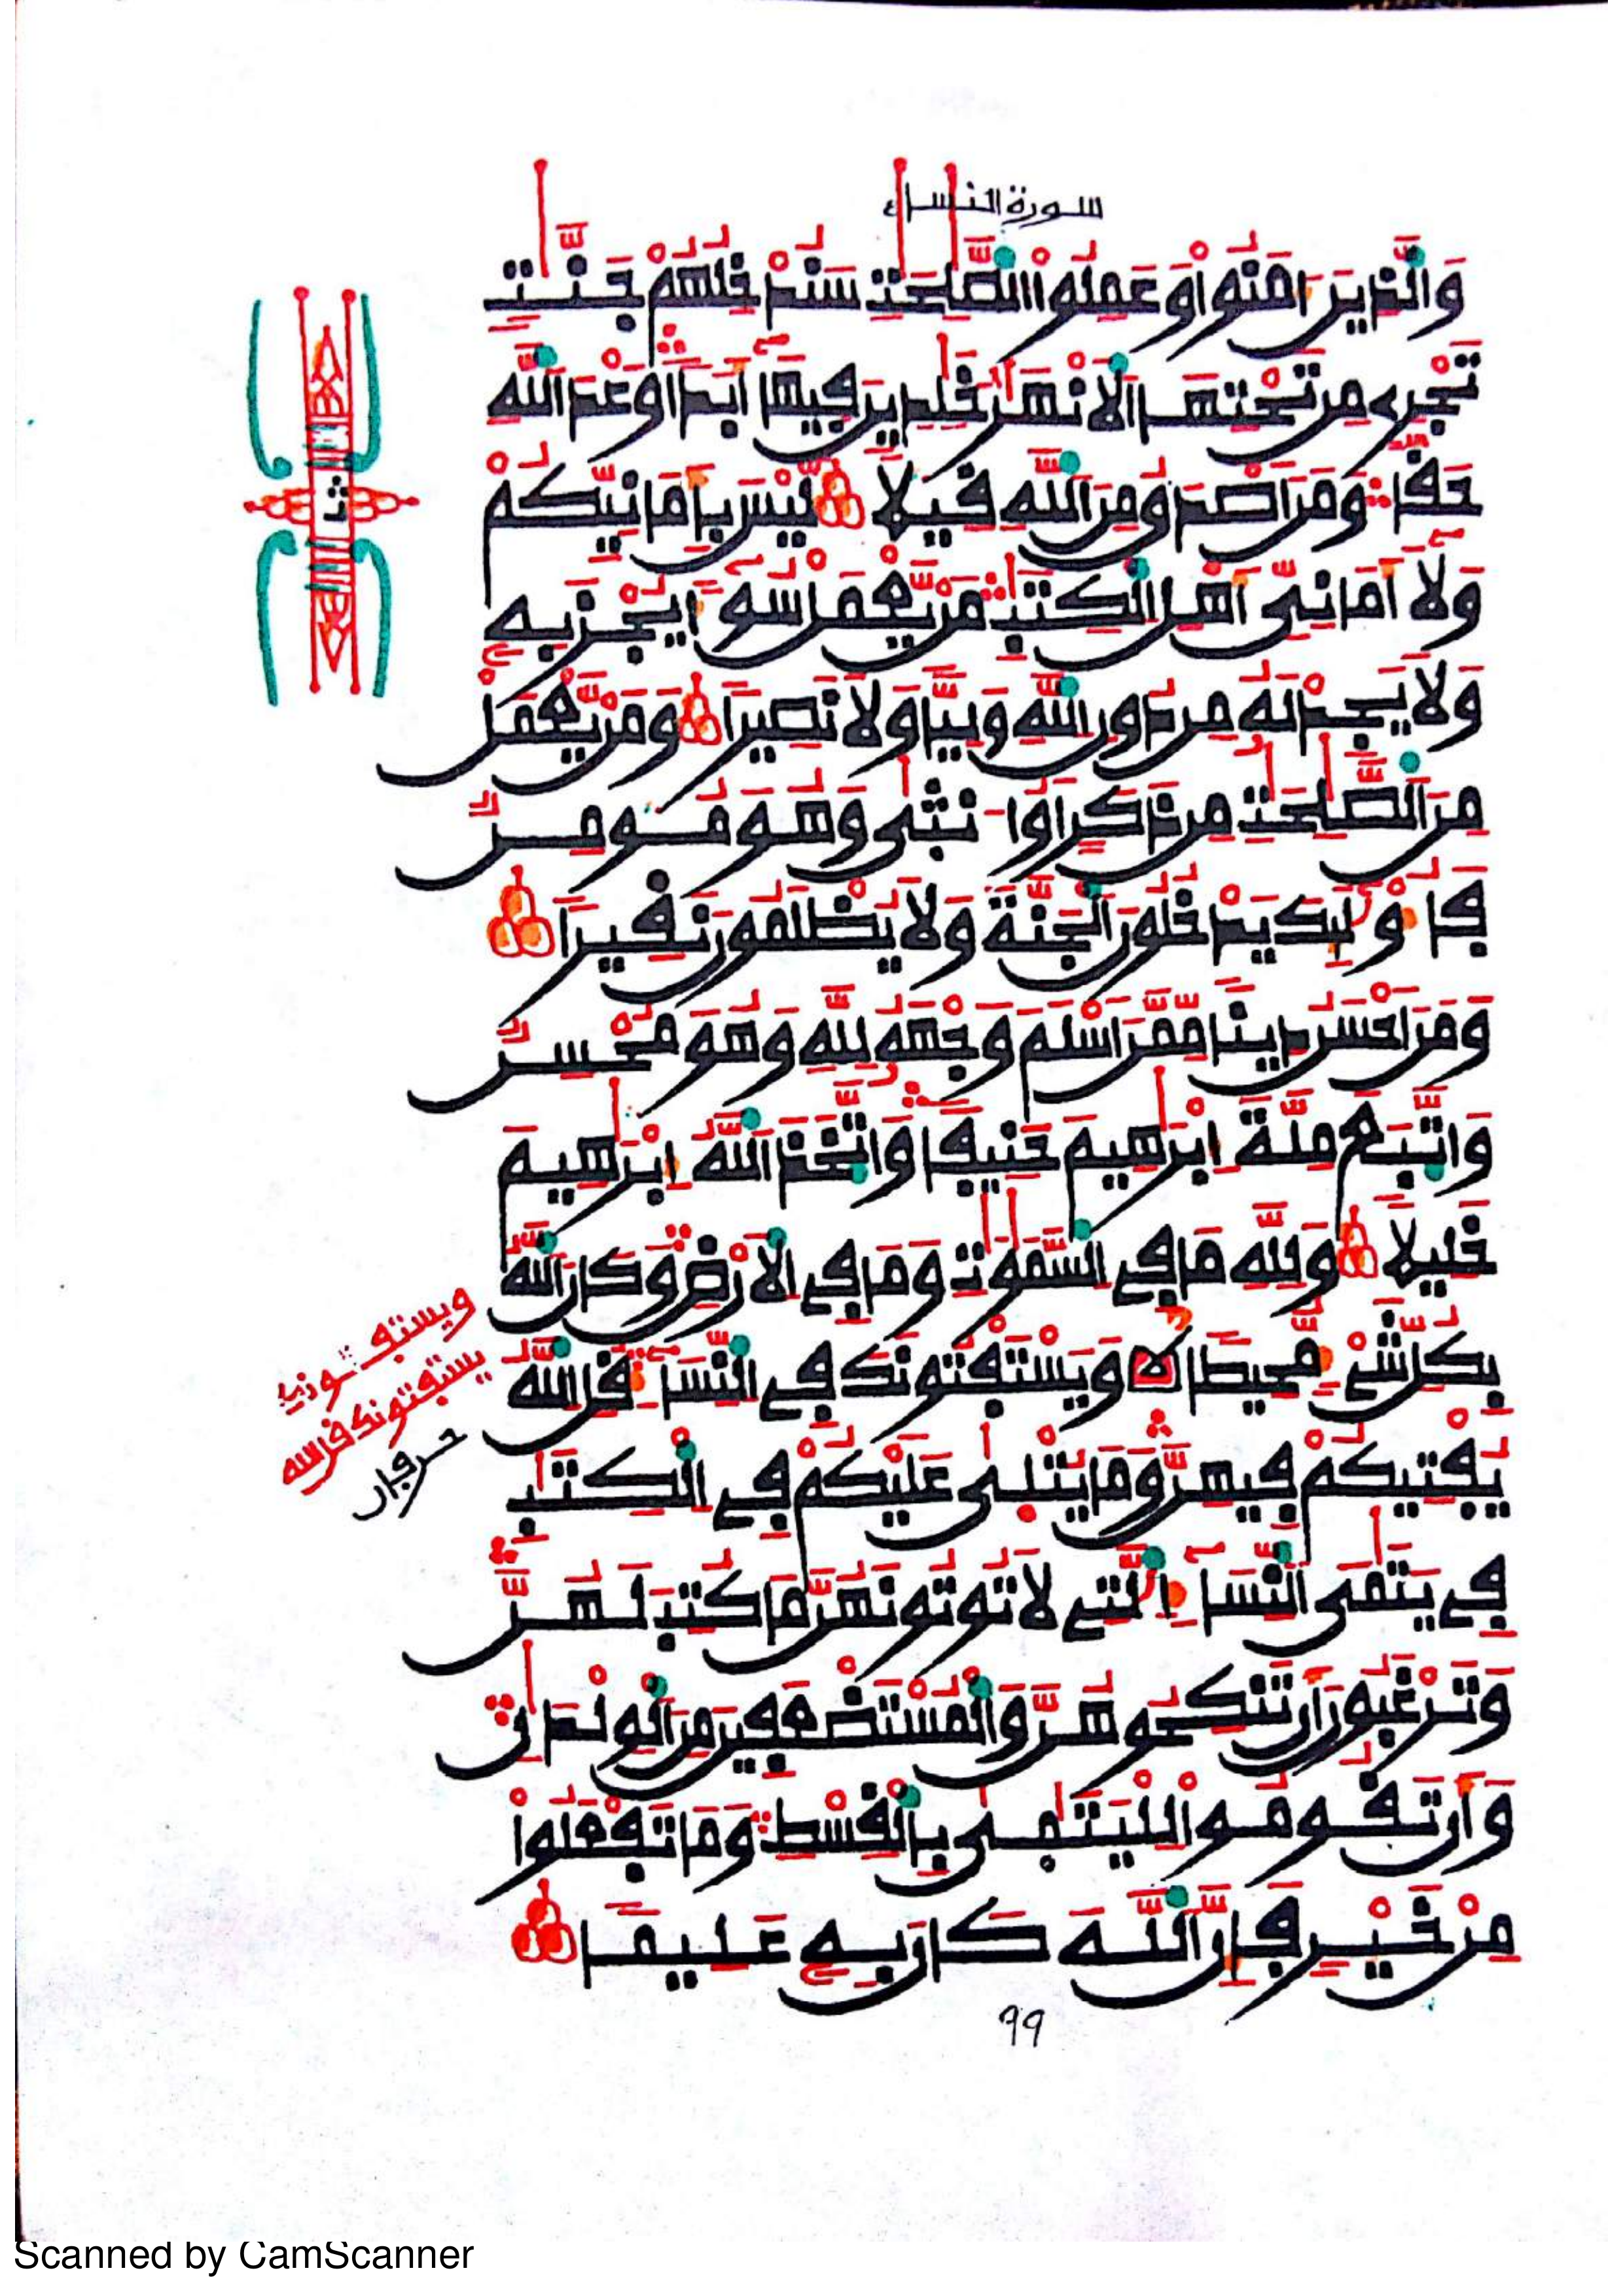 سورة النساء
وَالَّذِينَ ءَامَنُوا وَعَمِلُوا الصَّٰلِحَٰتِ سَنُدْخِلُهُمْ جَنَّٰتٍ
تَجْرِي مِن تَحْتِهَا الْأَنْهَٰرُ خَٰلِدِينَ فِيهَا أَبَدًا وَعْدَ اللَّهِ
حَقًّا وَمَنْ أَصْدَقُ مِنَ اللَّهِ قِيلًا لَيْسَ بِأَمَانِيِّكُمْ
وَلَا أَمَانِيِّ أَهْلِ الْكِتَٰبِ مَنْ يَعْمَلْ سُوءًا يُجْزَ بِهِ
وَلَا يَجِدْ لَهُ مِن دُونِ اللَّهِ وَلِيًّا وَلَا نَصِيرًا وَمَنْ يَعْمَلْ
مِنَ الصَّٰلِحَٰتِ مِن ذَكَرٍ أَوُ انثَىٰ وَهُوَ مُومِنٌ
فَأُوْلَٰئِكَ يَدْخُلُونَ الْجَنَّةَ وَلَا يُظْلَمُونَ نَقِيرًا
وَمَنَ احْسَنُ دِينًا مِّمَّنَ اسْلَمَ وَجْهَهُ لِلَّهِ وَهُوَ مُحْسِنٌ
وَاتَّبَعَ مِلَّةَ إِبْرَٰهِيمَ حَنِيفًا وَاتَّخَذَ اللَّهُ إِبْرَٰهِيمَ
خَلِيلًا وَلِلَّهِ مَا فِي السَّمَٰوَٰتِ وَمَا فِي الْأَرْضِ وَكَانَ اللَّهُ
بِكُلِّ شَيْءٍ مُّحِيطًا وَيَسْتَفْتُونَكَ فِي النِّسَاءِ قُلِ اللَّهُ
يُفْتِيكُمْ فِيهِنَّ وَمَا يُتْلَىٰ عَلَيْكُمْ فِي الْكِتَٰبِ
فِي يَتَٰمَى النِّسَاءِ الَّٰتِي لَا تُوتُونَهُنَّ مَا كُتِبَ لَهُنَّ
وَتَرْغَبُونَ أَن تَنكِحُوهُنَّ وَالْمُسْتَضْعَفِينَ مِنَ الْوِلْدَٰنِ
وَأَن تَقُومُوا لِلْيَتَٰمَىٰ بِالْقِسْطِ وَمَا تَفْعَلُوا
مِنْ خَيْرٍ فَإِنَّ اللَّهَ كَانَ بِهِ عَلِيمًا
يستفتونك قل الله
٩٩
Scanned by CamScanner